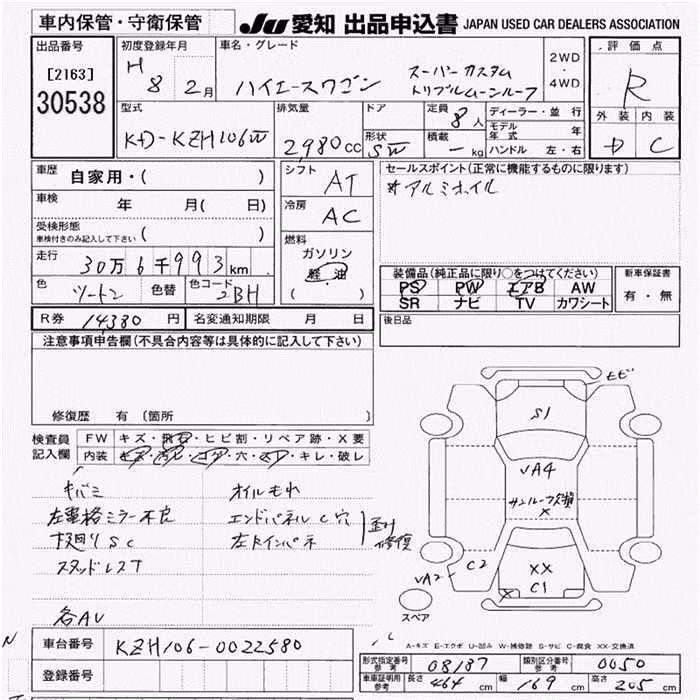 車内保管・守衛保管
JU 愛知 出品申込書 JAPAN USED CAR DEALERS ASSOCIATION
出品番号
[2163]
30538
初度登録年月
H 8 2月
車名・グレード
ハイエースワゴン
スーパーカスタム
トリプルムーンルーフ
2WD
・
4WD
評価点
R
外装 内装
C
型式
KD-KZH106W
排気量
2,980cc
ドア
形状
SW
定員
8人
積載
- kg
ディーラー・並行
モデル年式 年
ハンドル 左・右
車歴
自家用・( )
車検
年 月( 日)
受検形態
車検付きのみ記入して下さい ( )
走行
30万6千993km
色
ツートン
色替
色コード
2BH
シフト
AT
冷房
AC
燃料
ガソリン
軽油
( )
セールスポイント(正常に機能するものに限ります)
*アルミホイル
装備品(純正品に限り○をつけてください)
PS PW エアB AW
SR ナビ TV カワシート
新車保証書
有・無
後日品
R券 14,380 円 名変通知期限 月 日
注意事項申告欄(不具合内容等は具体的に記入して下さい)
修復歴 有(箇所 )
検査員
記入欄
FW キズ・飛石・ヒビ割・リペア跡・X要
内装 キズ・汚レ・コゲ・穴・スレ・キレ・破レ
キバミ
左電格ミラー不良
下廻りSC
スタッドレスT
各AU
オイルもれ
エンドパネルC穴
左Rインパネ
修復
ヒビ
S1
VA4
サンルーフ欠損
X
XX
C1
X
C2
VA2
スペア
A-キズ E-エクボ U-凹み W-補修跡 S-サビ C-腐食 XX-交換済
車台番号 KZH106-0022580
登録番号
形式指定番号 参考 08187
類別区分番号 参考 0050
車庫証明用 参考 長さ 464 cm 幅 169 cm 高さ 205 cm